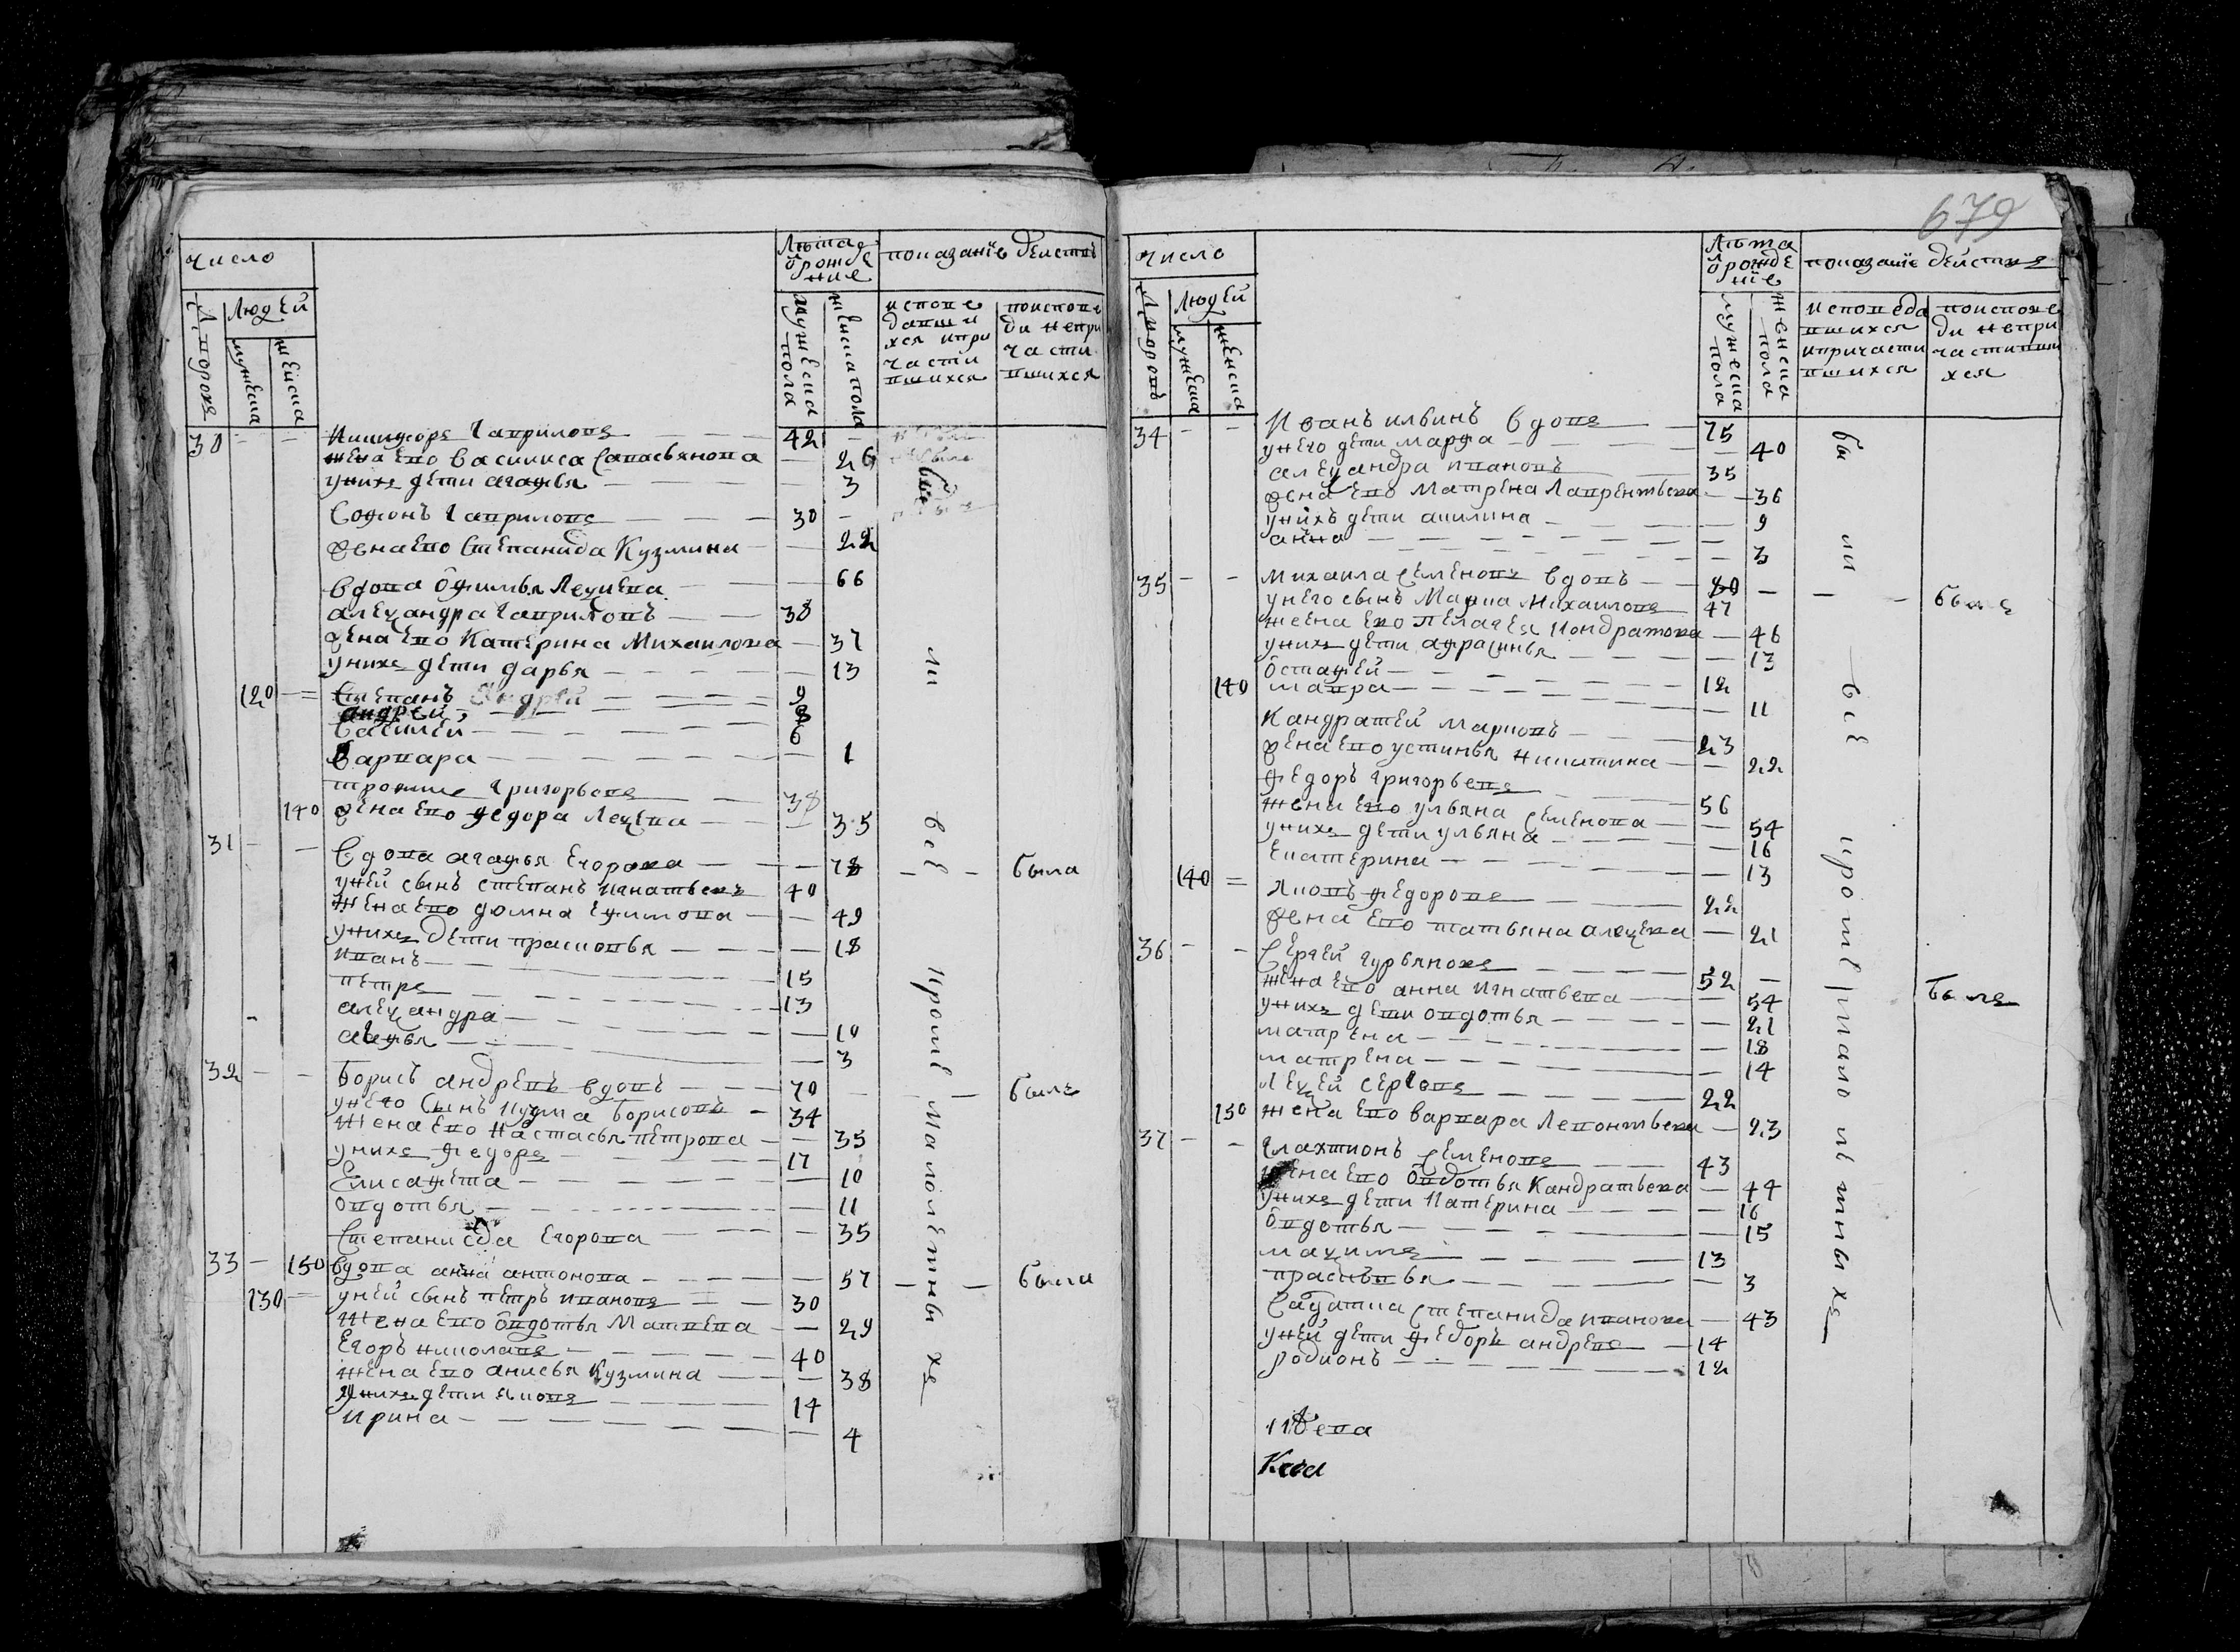 число
Людей
Дворовъ
мужеска
женска
Лѣта
ѿ рожде
ние
мужеска пола
женска пола
показаніе действъ
исповѣ
давши
хся и при
части
вшихся
по исповѣ
ди не при
части
вшихся
30 Никифоръ Гавриловъ 42
жена его Василиса Савасьянова 26
у нихъ дети Агафья 3
Софонъ Гавриловъ 30
жена его Степанида Кузмина 22
Вдова Офимья Лецъева 66
Алецандра Гавриловъ 38
жена его Катерина Михаилова 37
у нихъ дети Дарья 13
120 Степанъ Андрей 9
Андрей 8
Василей 6
Варвара 1
Григорьевъ 38
140 жена его Федора Лецева 35
31 Вдова Агафья Егорова 78 была
у ней сынъ Степанъ Игнатьевъ 40
жена его Домна Ефимова 49
у нихъ дети Прасковья 18
Иванъ 15
Петръ 13
Алецандра 10
Агафья 3
32 Борисъ Андревъ вдовъ 70 былъ
у него сынъ Кузма Борисовъ 34
жена его Настасья Петрова 35
у нихъ Федоръ 17
Елисафета 10
Овдотья 11
Степанида Егорова 35
33 150 Вдова Анна Антонова 57 была
130 у ней сынъ Петръ Ивановъ 30
жена его Овдотья Матвева 29
Егоръ Николавъ 40
жена его Анисья Кузмина 38
у нихъ дети Яковъ 14
Ирина 4
были все кроме малолетныхъ
679
число
Людей
Дворовъ
мужеска
женска
Лѣта
ѿ рожде
ніе
мужеска пола
женска пола
показаніе действия
исповеда
вшихся
и причасти
вшихся
по исповѣ
ди не при
частивши
хся
34 Иванъ Ильинъ вдовъ 75
у него дети Марфа 40
Алецандра Ивановъ 35
жена его Матрена Лаврентьева 36
у нихъ дети Акилина 9
Анна 3
35 Михаила Семеновъ вдовъ 80 былъ
у него сынъ Марка Михаиловъ 47
жена его Пелагея Кондратова 46
у нихъ дети Афрасинья 13
Остафей 12
140 Мавра 11
Кандратей Марковъ 23
жена его Устинья Никитина 22
Федоръ Григорьевъ 56
жена его Ульяна Семенова 54
у нихъ дети Ульяна 16
Екатерина 13
140 Яковъ Федоровъ 22
жена его Татьяна Алецева 21
36 Сергей Гурьяновъ 52 былъ
жена его Анна Игнатьева 54
у нихъ дети Овдотья 21
Матрена 18
Матрена 14
Лецей Серговъ 22
150 жена его Варвара Левонтьева 23
37 Галахтионъ Семеновъ 43
жена его Овдотья Кандратьева 44
у нихъ дети Катерина 16
Овдотья 15
Мацимъ 13
Прасковья 3
Салдатка Степанида Иванова 43
у ней дети Федоръ Андревъ 14
Родионъ 12
были все кроме малолетныхъ